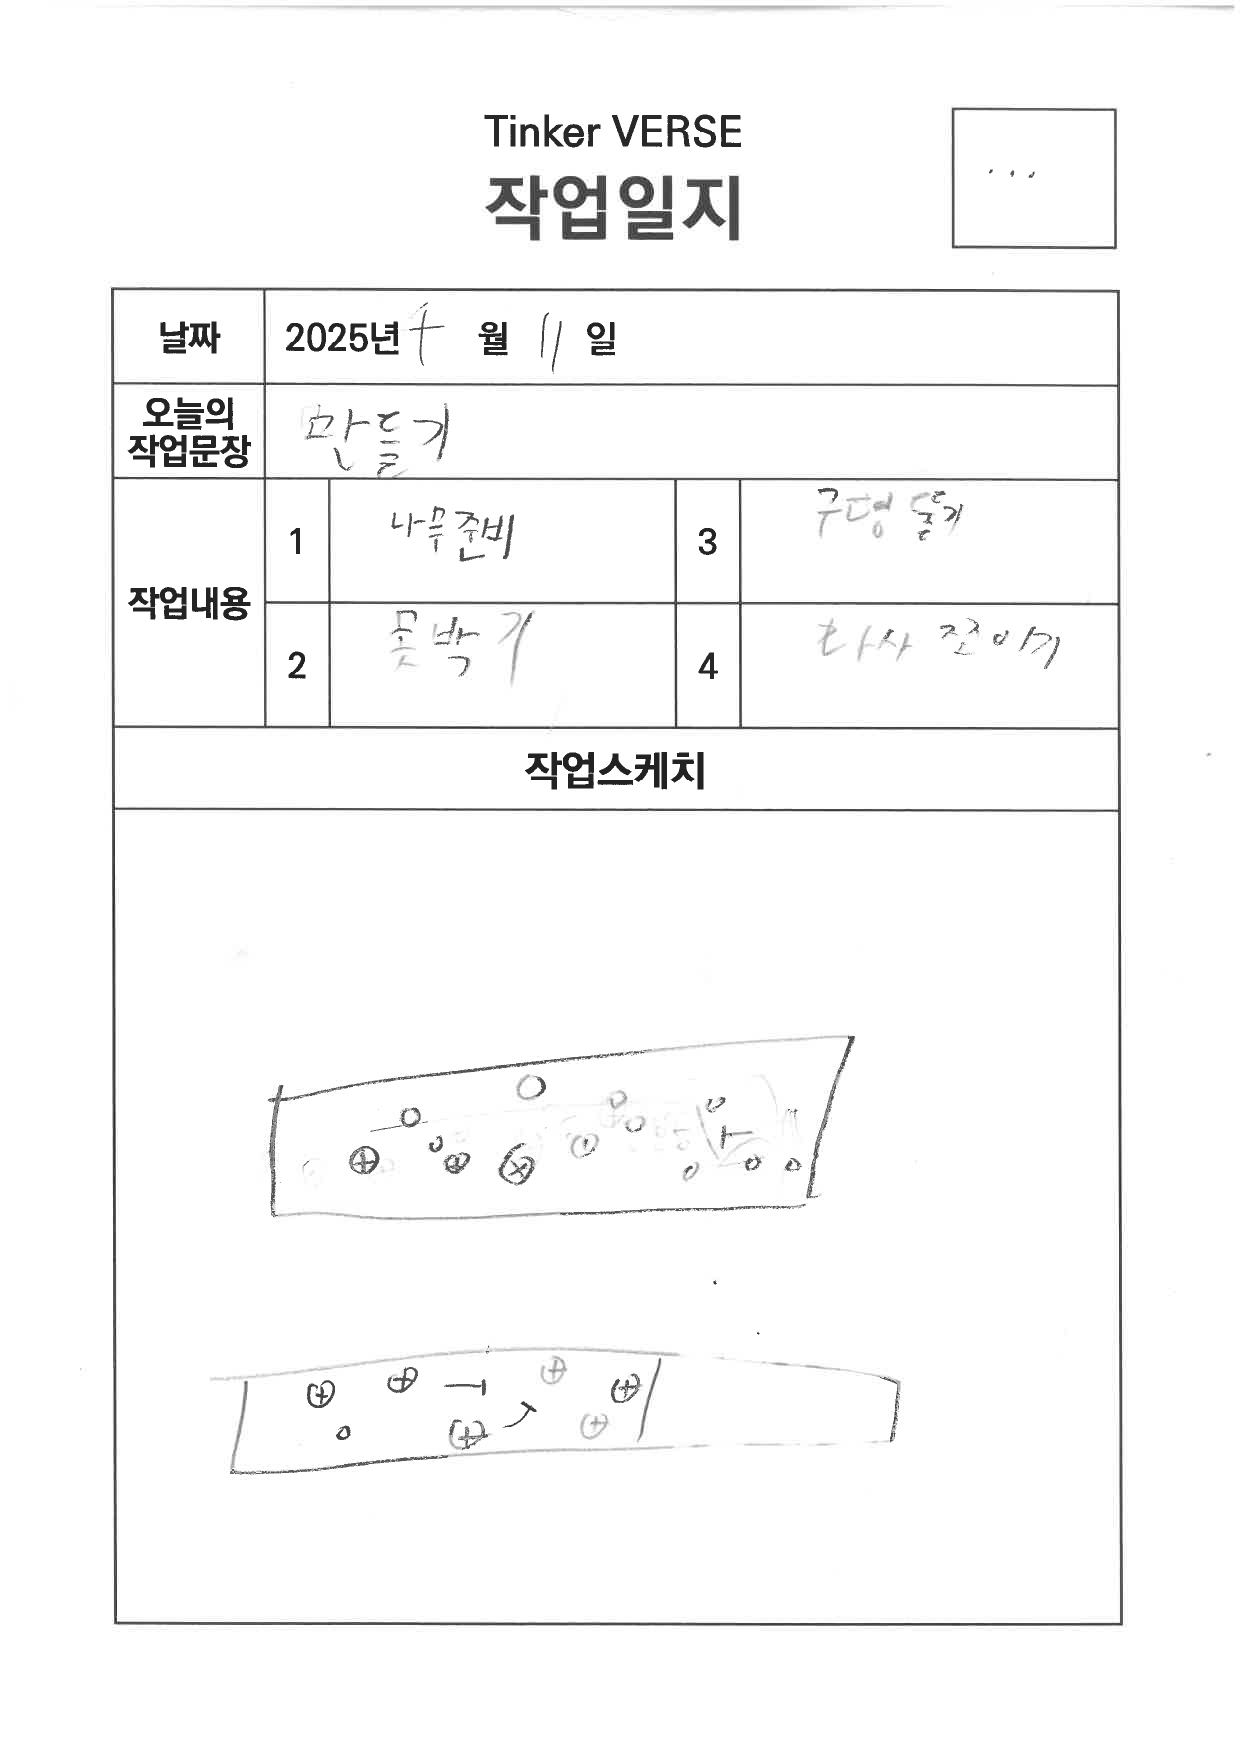 Tinker VERSE
작업일지
...
날짜 2025년 4월 11일
오늘의
작업문장
만들기
작업내용
1 나무준비
3 구멍 뚫기
2 못박기
4
작업스케치